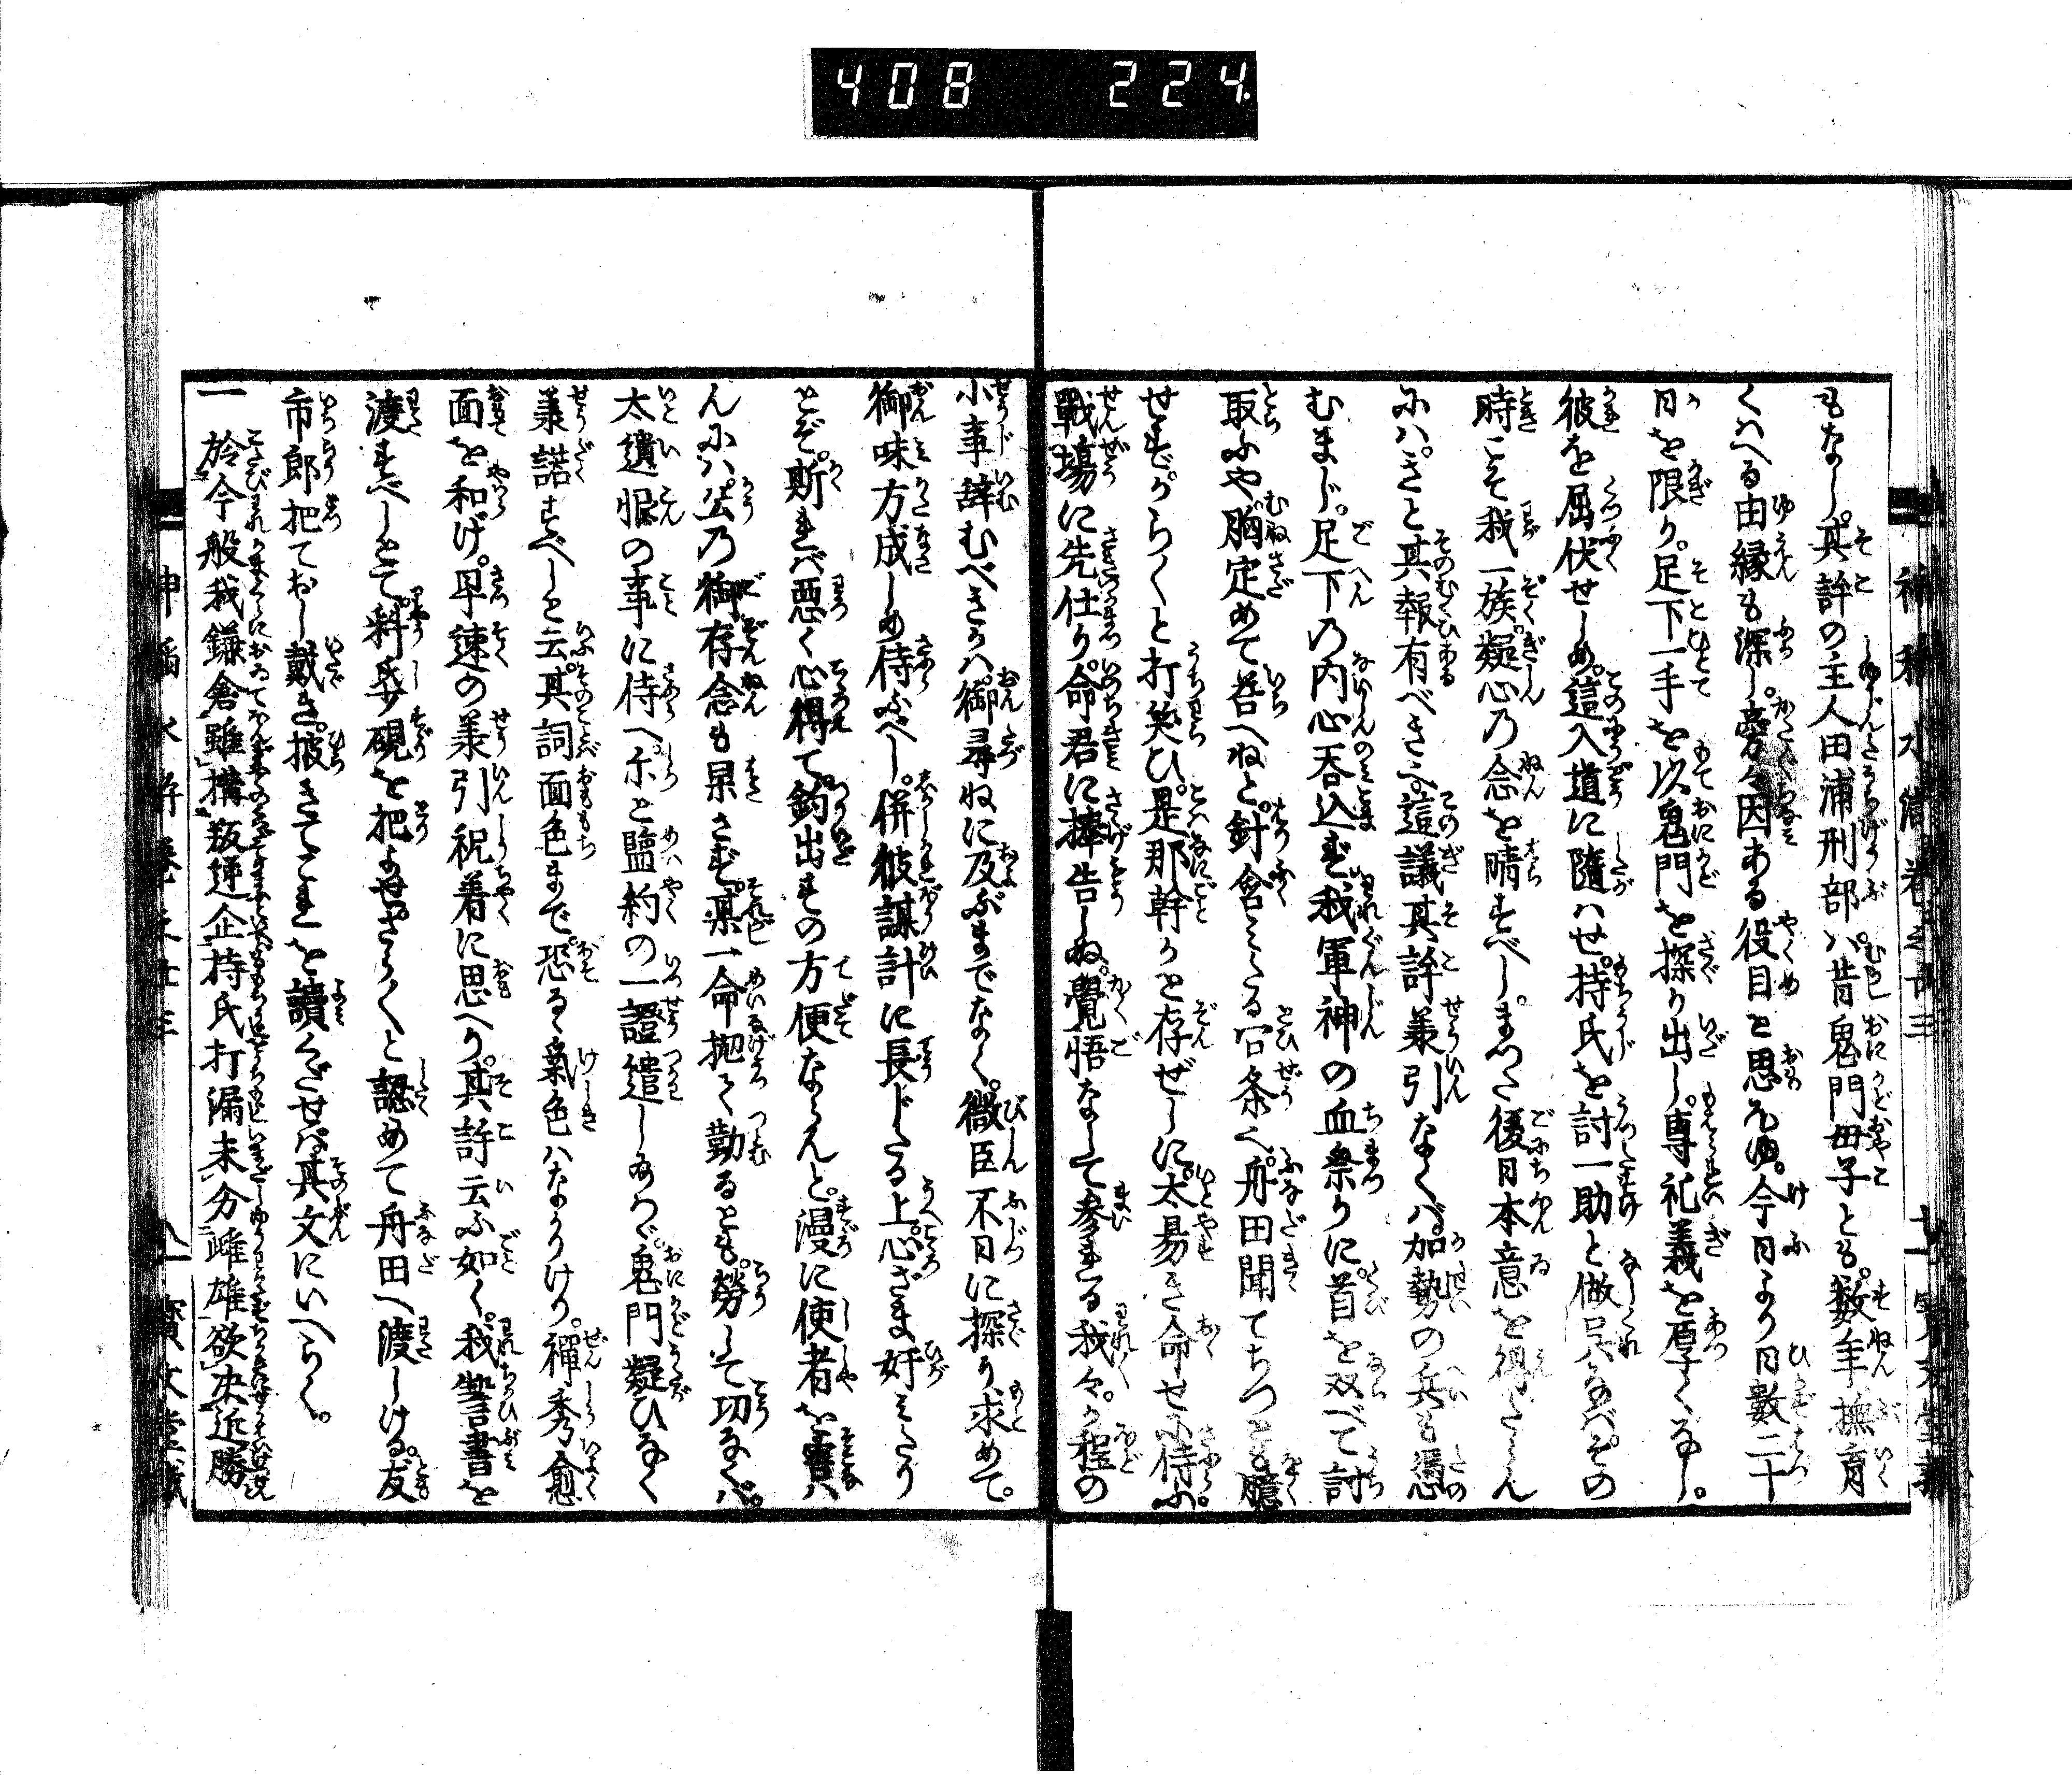 408 224
もなし。其許の主人田浦刑部ハ。昔鬼門毋子とも。数年撫育
くハへる由縁も深し。旁々因ある役目と思ふゆゑ。今日より日數二十
日を限り。足下一手を以鬼門を探り出し。専礼義を厚くなし。
彼を屈伏せしめ。這入道に隨ハせ。持氏を討一助と做呉なバ。その
時こそ我一族。疑心の念を晴すべし。まつた後日本意を得たらん
にハ。きと其報有べきぞ。這議其許兼引なくバ。加勢の兵も憑
むまじ。足下の内心呑込ず。我軍神の血祭りに。首を双べて討
取ふや。胸定めて荅へねと。針含ミたる口条く。舟田聞てちつとも臆
せず。からくと打笑ひ。是那幹かと存ぜしに。太易き命せに侍ふ。
戰場に先仕り。命君に捧告しぬ。覺悟なして参れる我々。か程の
小事辞むべきかハ。御尋ねに及ぶまでなく。微臣不日に探り求めて。
御味方成しめ侍ふべし。併彼謀計に長じたる上。心ざま奸ミたり
とぞ。斯れバ悪く心得て。釣出すの方便ならんと。漫に使者を害ハ
んにハ。公乃御存念も果さず。某一命抛て勤るとも。勞して功なくバ。
太遺恨の事に侍へ。尓と盟約の一證遣しあらバ。鬼門疑ひなく
兼諾すべしと云。其詞面色まで。恐るゝ氣色ハなかりけり。禅秀愈
面を和げ。早速の兼引祝着に思へり。其許云ふ如く。我誓書を
渡すべしとて。料帋硯を把よせ。さらくと認めて舟田へ渡しける。友
市郎把ておし戴き。披きてこれを讀くだせバ。其文にいへらく。
一 於今般我鎌倉雖構叛逆企持氏打漏未分雌雄欲决近勝